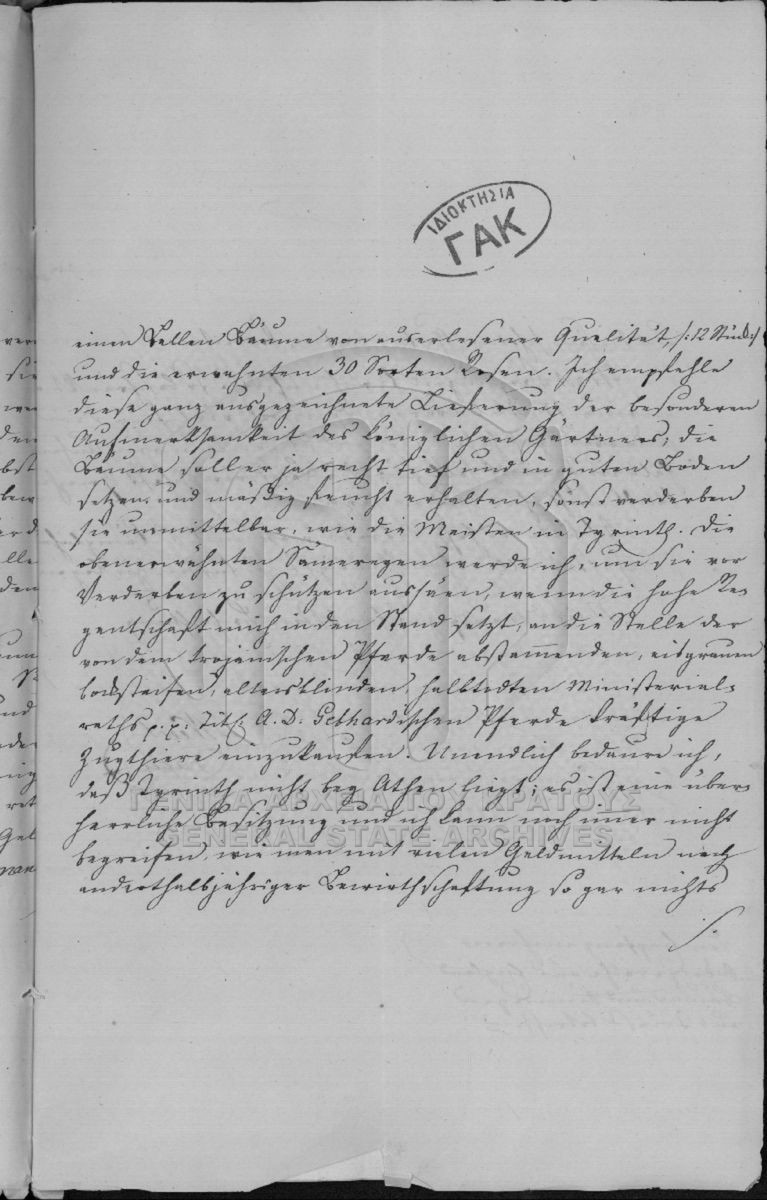 ΙΔΙΟΚΤΗΣΙΑ
ΓΑΚ
einen Ballen Bäume von auserlesener Qualität, /:12 Stück:/
und die erwähnten 30 Sorten Rosen. Ich empfehle
diese ganz ausgezeichnete Lieferung der besonderen
Aufmerksamkeit des königlichen Gärtners; die
Bäume soll er ja recht tief und in guten Boden
setzen, und mäßig feucht erhalten, sonst verderben
sie unmittelbar, wie die Meisten in Tyrinth. Die
obenerwähnten Sämereyen werde ich, um sie vor
Verderben zu schützen aussäen, wenn die hohe Re-
gentschaft mich in den Stand setzt, an die Stelle der
von dem trojanischen Pferde abstam̄enden, eisgrauen
bocksteifen, altersblinden, halbtodten Ministerial-
raths p. p. Tit: A. D: Gebhardischen Pferde kräftige
Zugthiere einzukaufen. Unendlich bedaure ich,
daß Tyrinth nicht bey Athen liegt; es ist eine über-
herrliche Besitzung und ich kann noch im̄er nicht
begreifen, wie man mit vielen Geldmitteln nach
anderthalbjähriger Bewirthschaftung so gar nichts
ΓΕΝΙΚΑ ΑΡΧΕΙΑ ΤΟΥ ΚΡΑΤΟΥΣ
GENERAL STATE ARCHIVES